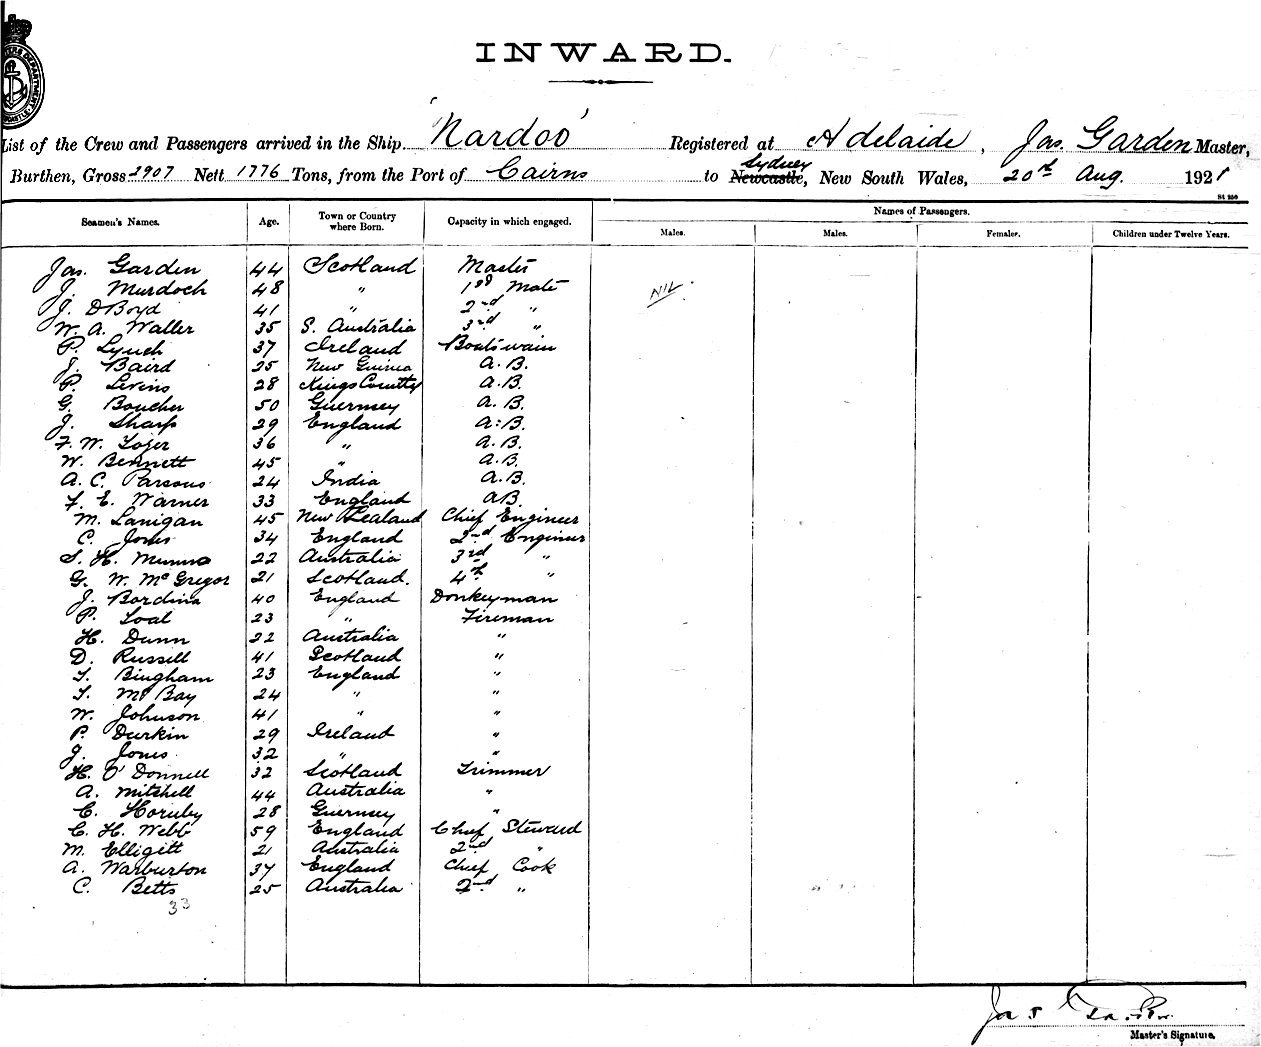 INWARD.
List of the Crew and Passengers arrived in the Ship 'Nardoo' Registered at Adelaide, Jas. Garden Master,
Burthen, Gross 2907 Nett 1776 Tons, from the Port of Cairns to Newcastle, Sydney New South Wales, 20th Aug. 1921
St 250
Seamen's Names. Age. Town or Country where Born. Capacity in which engaged. Names of Passengers.
Males. Males. Females. Children under Twelve Years.
Jas. Garden 44 Scotland Master
J. Murdoch 48 " 1st Mate NIL.
J. D Boyd 41 " 2nd "
W. A. Waller 35 S. Australia 3rd "
P. Lynch 37 Ireland Boatswain
J. Baird 25 New Guinea A.B.
P. Levins 28 Kings County A.B.
G. Boucher 50 Guernsey A.B.
J. Sharp 29 England A.B.
F. W. Tozer 36 " A.B.
W. Bennett 45 " A.B.
A. C. Parsons 24 India A.B.
F. E. Warner 33 England AB.
M. Lanigan 45 New Zealand Chief Engineer
C. Jones 34 England 2nd Engineer
S. H. Munro 22 Australia 3rd "
G. W. McGregor 21 Scotland. 4th "
J. Bordina 40 England Donkeyman
P. Loal 23 " Fireman
H. Dunn 22 Australia "
D. Russell 41 Scotland "
T. Bingham 23 England "
T. McBay 24 " "
W. Johnson 41 " "
P. Durkin 29 Ireland "
J. Jones 32 " "
H. O'Donnell 32 Scotland Trimmer
A. Mitchell 44 Australia "
C. Hornby 28 Guernsey "
C. H. Webb 59 England Chief Steward
M. Elligitt 21 Australia 2nd "
A. Warburton 37 England Chief Cook
C. Betts 25 Australia 2nd "
33
Jas Garden
Master's Signature.